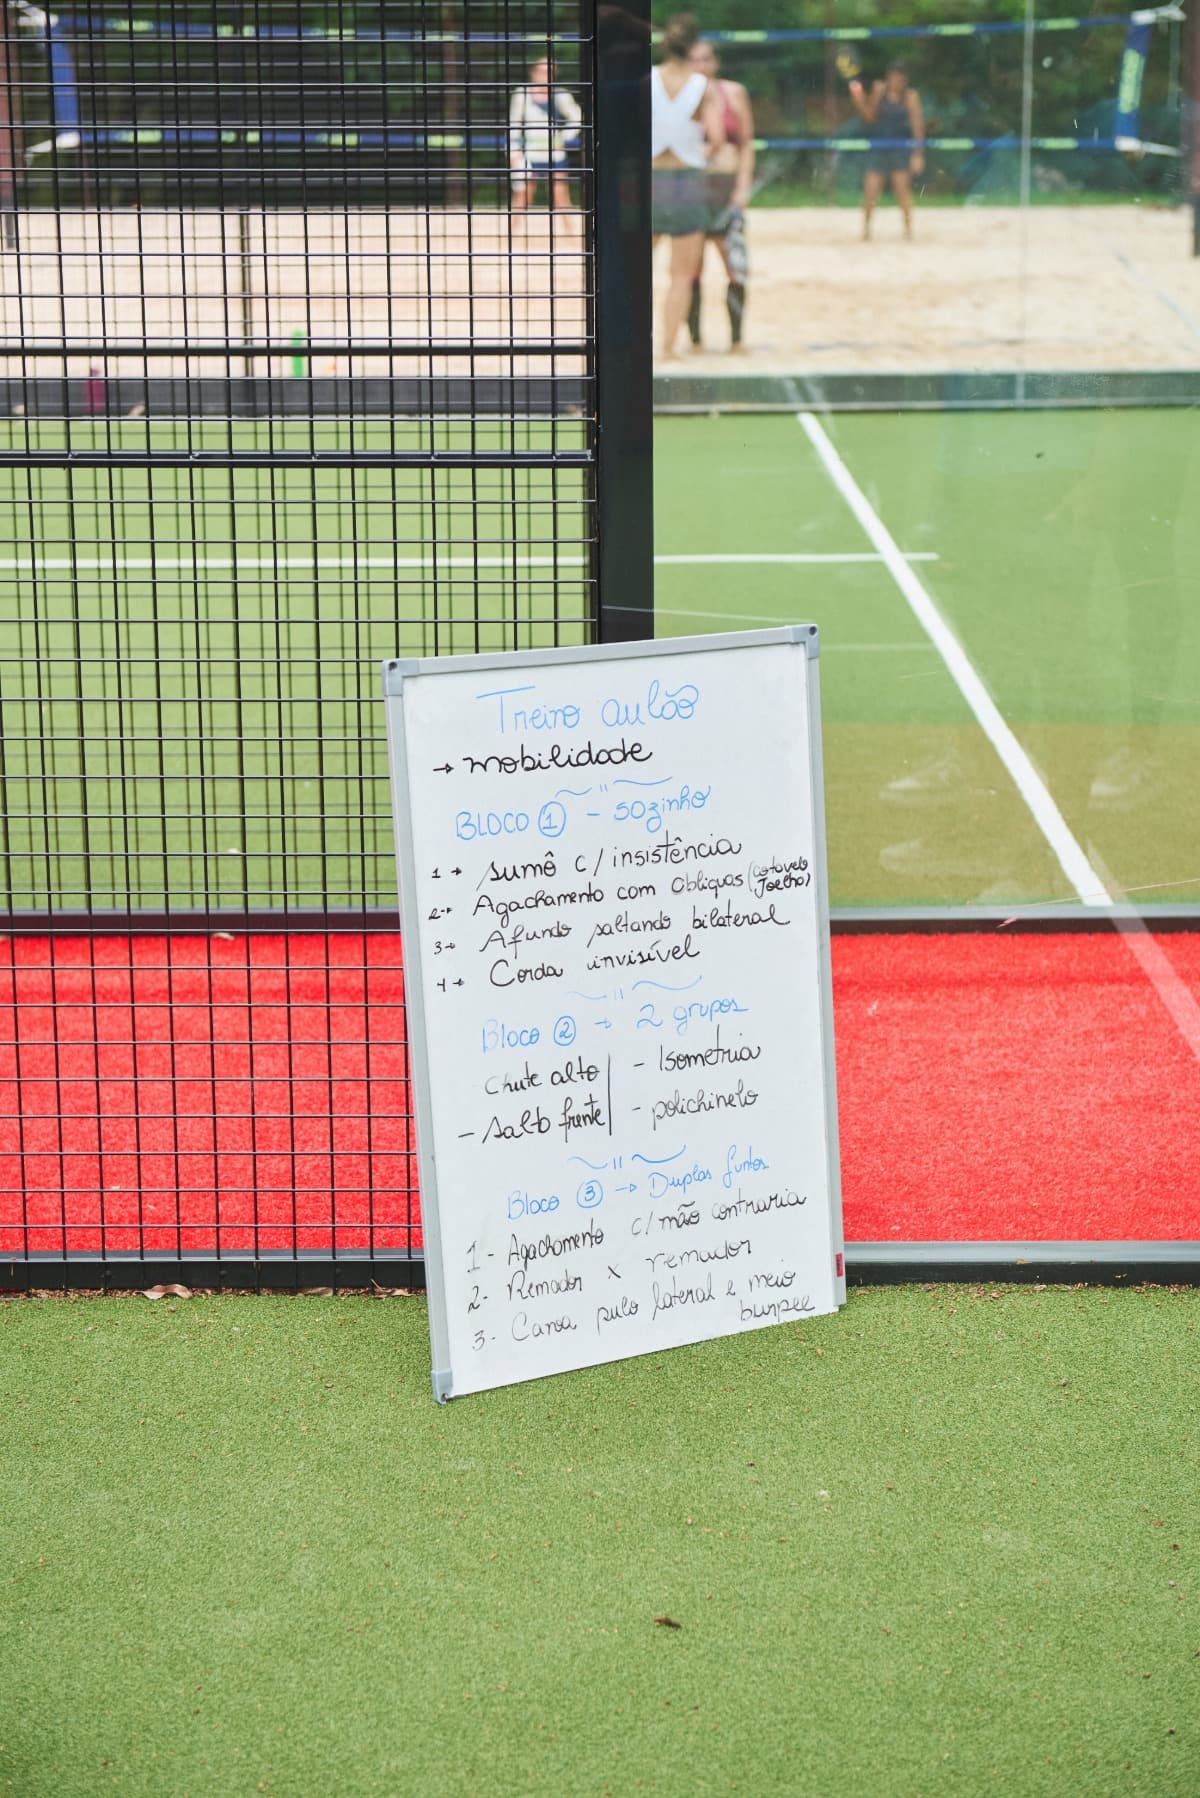 Treino aulão
→ mobilidade
BLOCO 1 - sozinho
1 → sumô c/ insistência
2 → Agachamento com Obliquos (cotovelo Joelho)
3 → Afundo saltando bilateral
4 → Corda invisível
Bloco 2 → 2 grupos
Chute alto | - Isometria
- Salto frente | - polichinelo
Bloco 3 → Duplas juntos
1 - Agachamento c/ mão contraria
2 - Remador x remador
3 - Canoa pulo lateral e meio
burpee